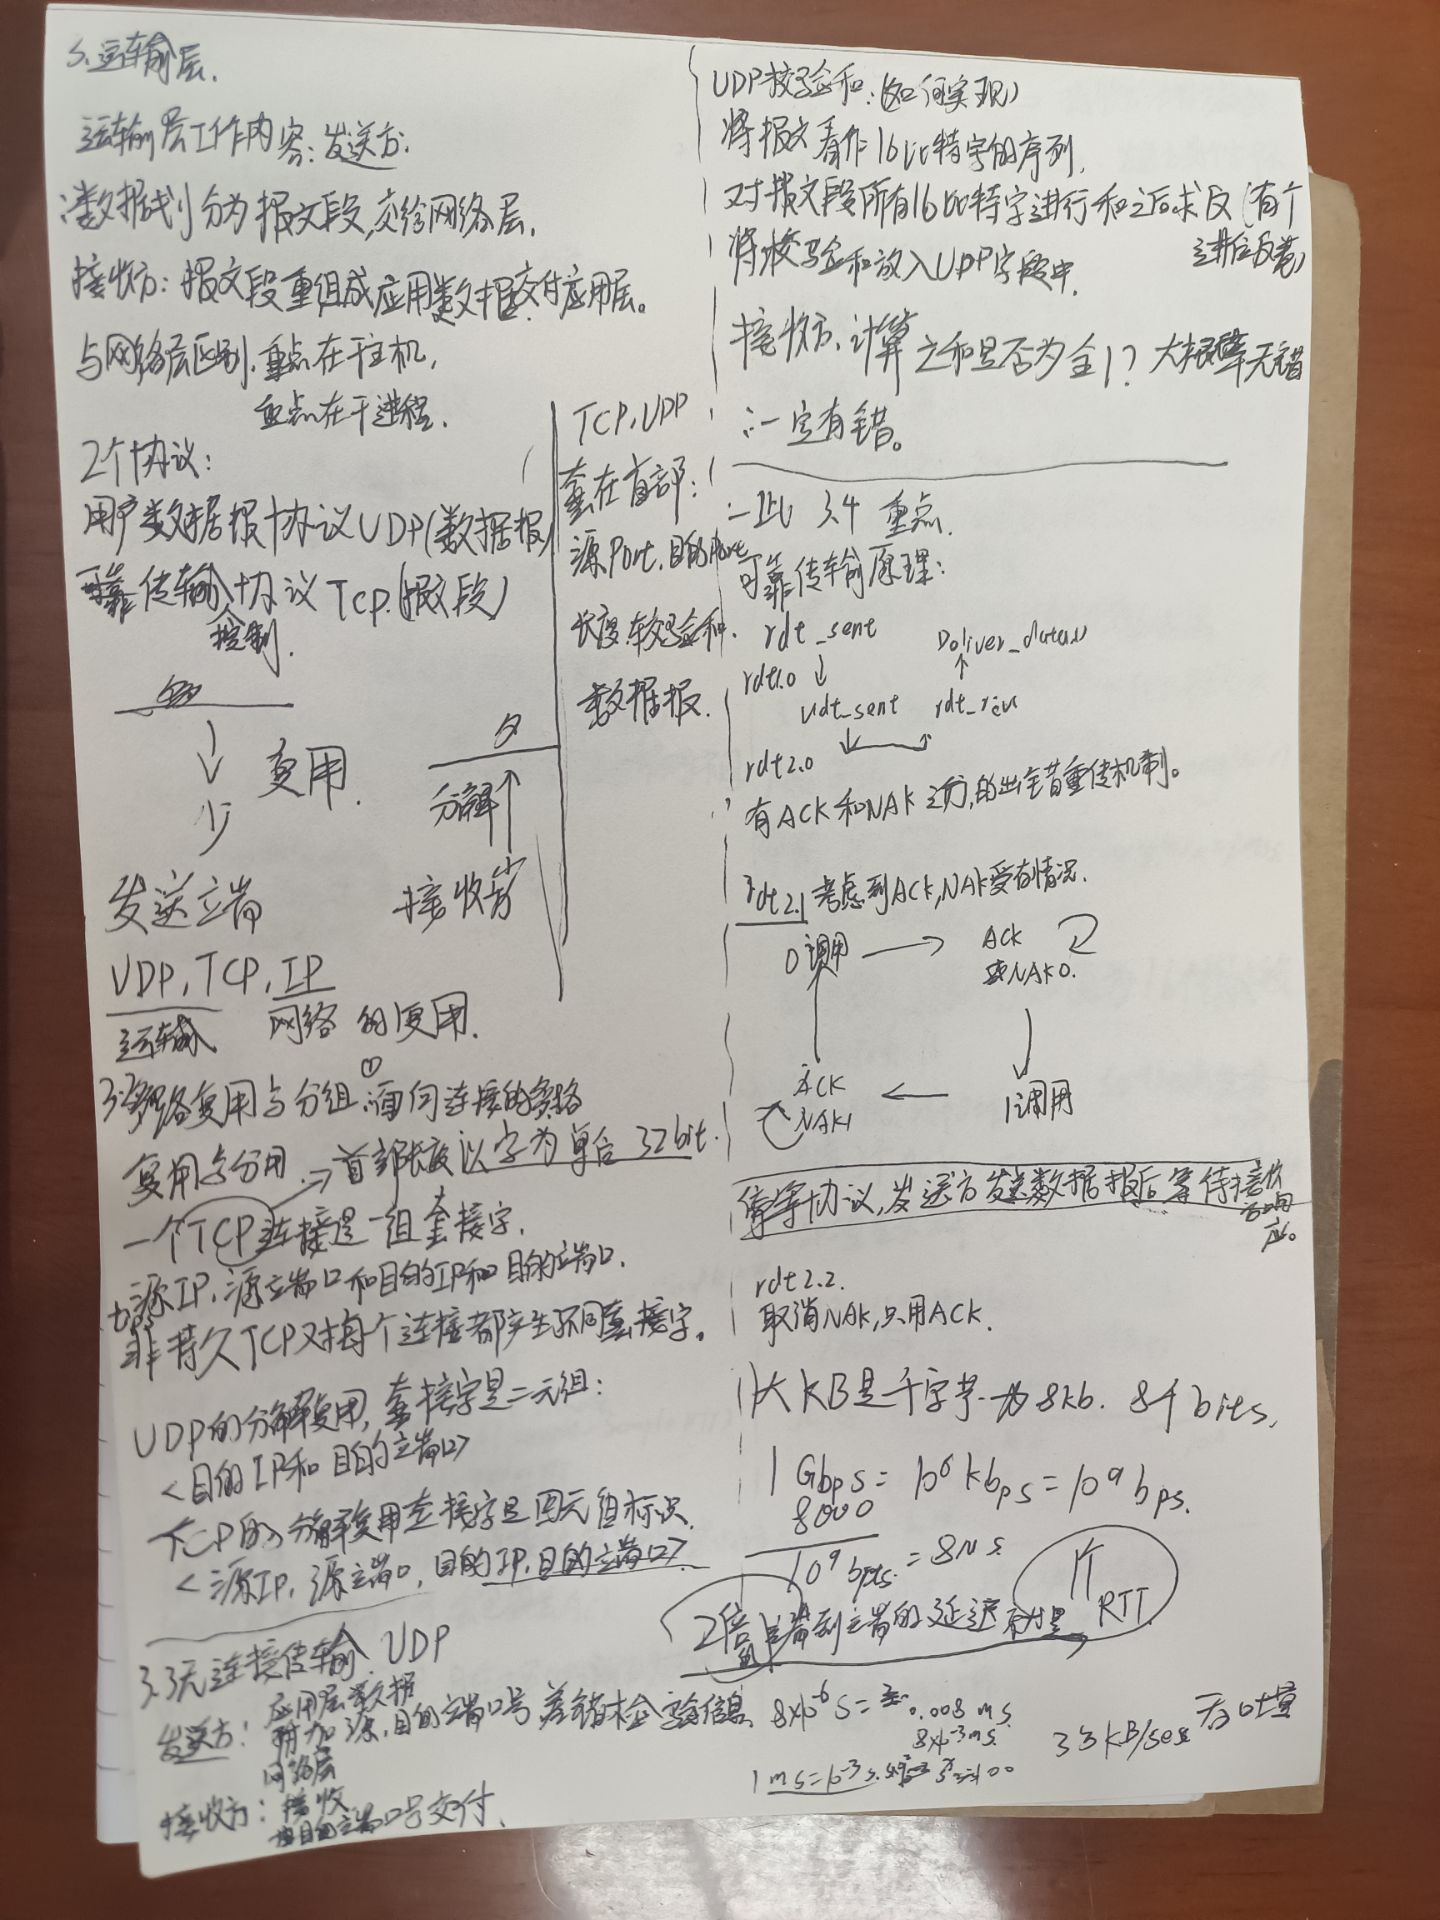 3.运输层.
运输层工作内容:发送方:
数据划分为报文段,交给网络层.
接收方:报文段重组成应用数据交付应用层。
与网络层区别.重点在于主机,
重点在于进程.
2个协议:
用户数据报协议UDP(数据报)
可靠传输协议TCP.(报文段)
控制.
多
复用.
少
发送端
多
分解
少
接收端
TCP,UDP
套在首部:
源Port,目的Port
长度,校验和.
数据报.
UDP,TCP,IP
运输 网络 的复用.
3.2多路复用与分组:①面向连接的多路
复用与分用 → 首部长度以字为单位 32bit.
一个TCP连接是一组套接字.
源IP,源端口和目的IP和目的端口.
非持久TCP对每个连接都产生不同套接字。
UDP的分解复用,套接字是二元组:
<目的IP和目的端口>
TCP的分解复用套接字是四元组标识
<源IP,源端口,目的IP,目的端口>
3.3无连接传输.UDP
发送方: 应用层数据
附加源,目的端口号 差错检验信息
网络层
接收方: 接收
按目的端口号交付.
UDP校验和:(如何实现)
将报文看作16比特字的序列,
对报文段所有16比特字进行和之后求反(有个
进位反卷)
将校验和放入UDP字段中.
接收方,计算之和是否为全1?大概率无错
:一定有错。
3.4 重点.
可靠传输原理:
rdt_sent Deliver_data
rdt1.0
udt_sent rdt_rcv
rdt2.0
有ACK和NAK 的出错重传机制。
rdt2.1 考虑到ACK,NAK受有情况.
0调用 → ACK
或NAK0.
ACK ← 1调用
NAK1
停等协议,发送方发送数据报后等待接收
者响
应。
rdt2.2.
取消NAK,只用ACK.
1大KB是千字节.为8kb. 8千bits,
1 Gbps = 10⁶ kbps = 10⁹ bps.
8000
10⁹ bps = 8us
2倍端到端的延迟 RTT
8×10⁻⁶ s = 0.008 ms.
8×10⁻³ms
1 ms=10⁻³s.
33kB/sec 吞吐量